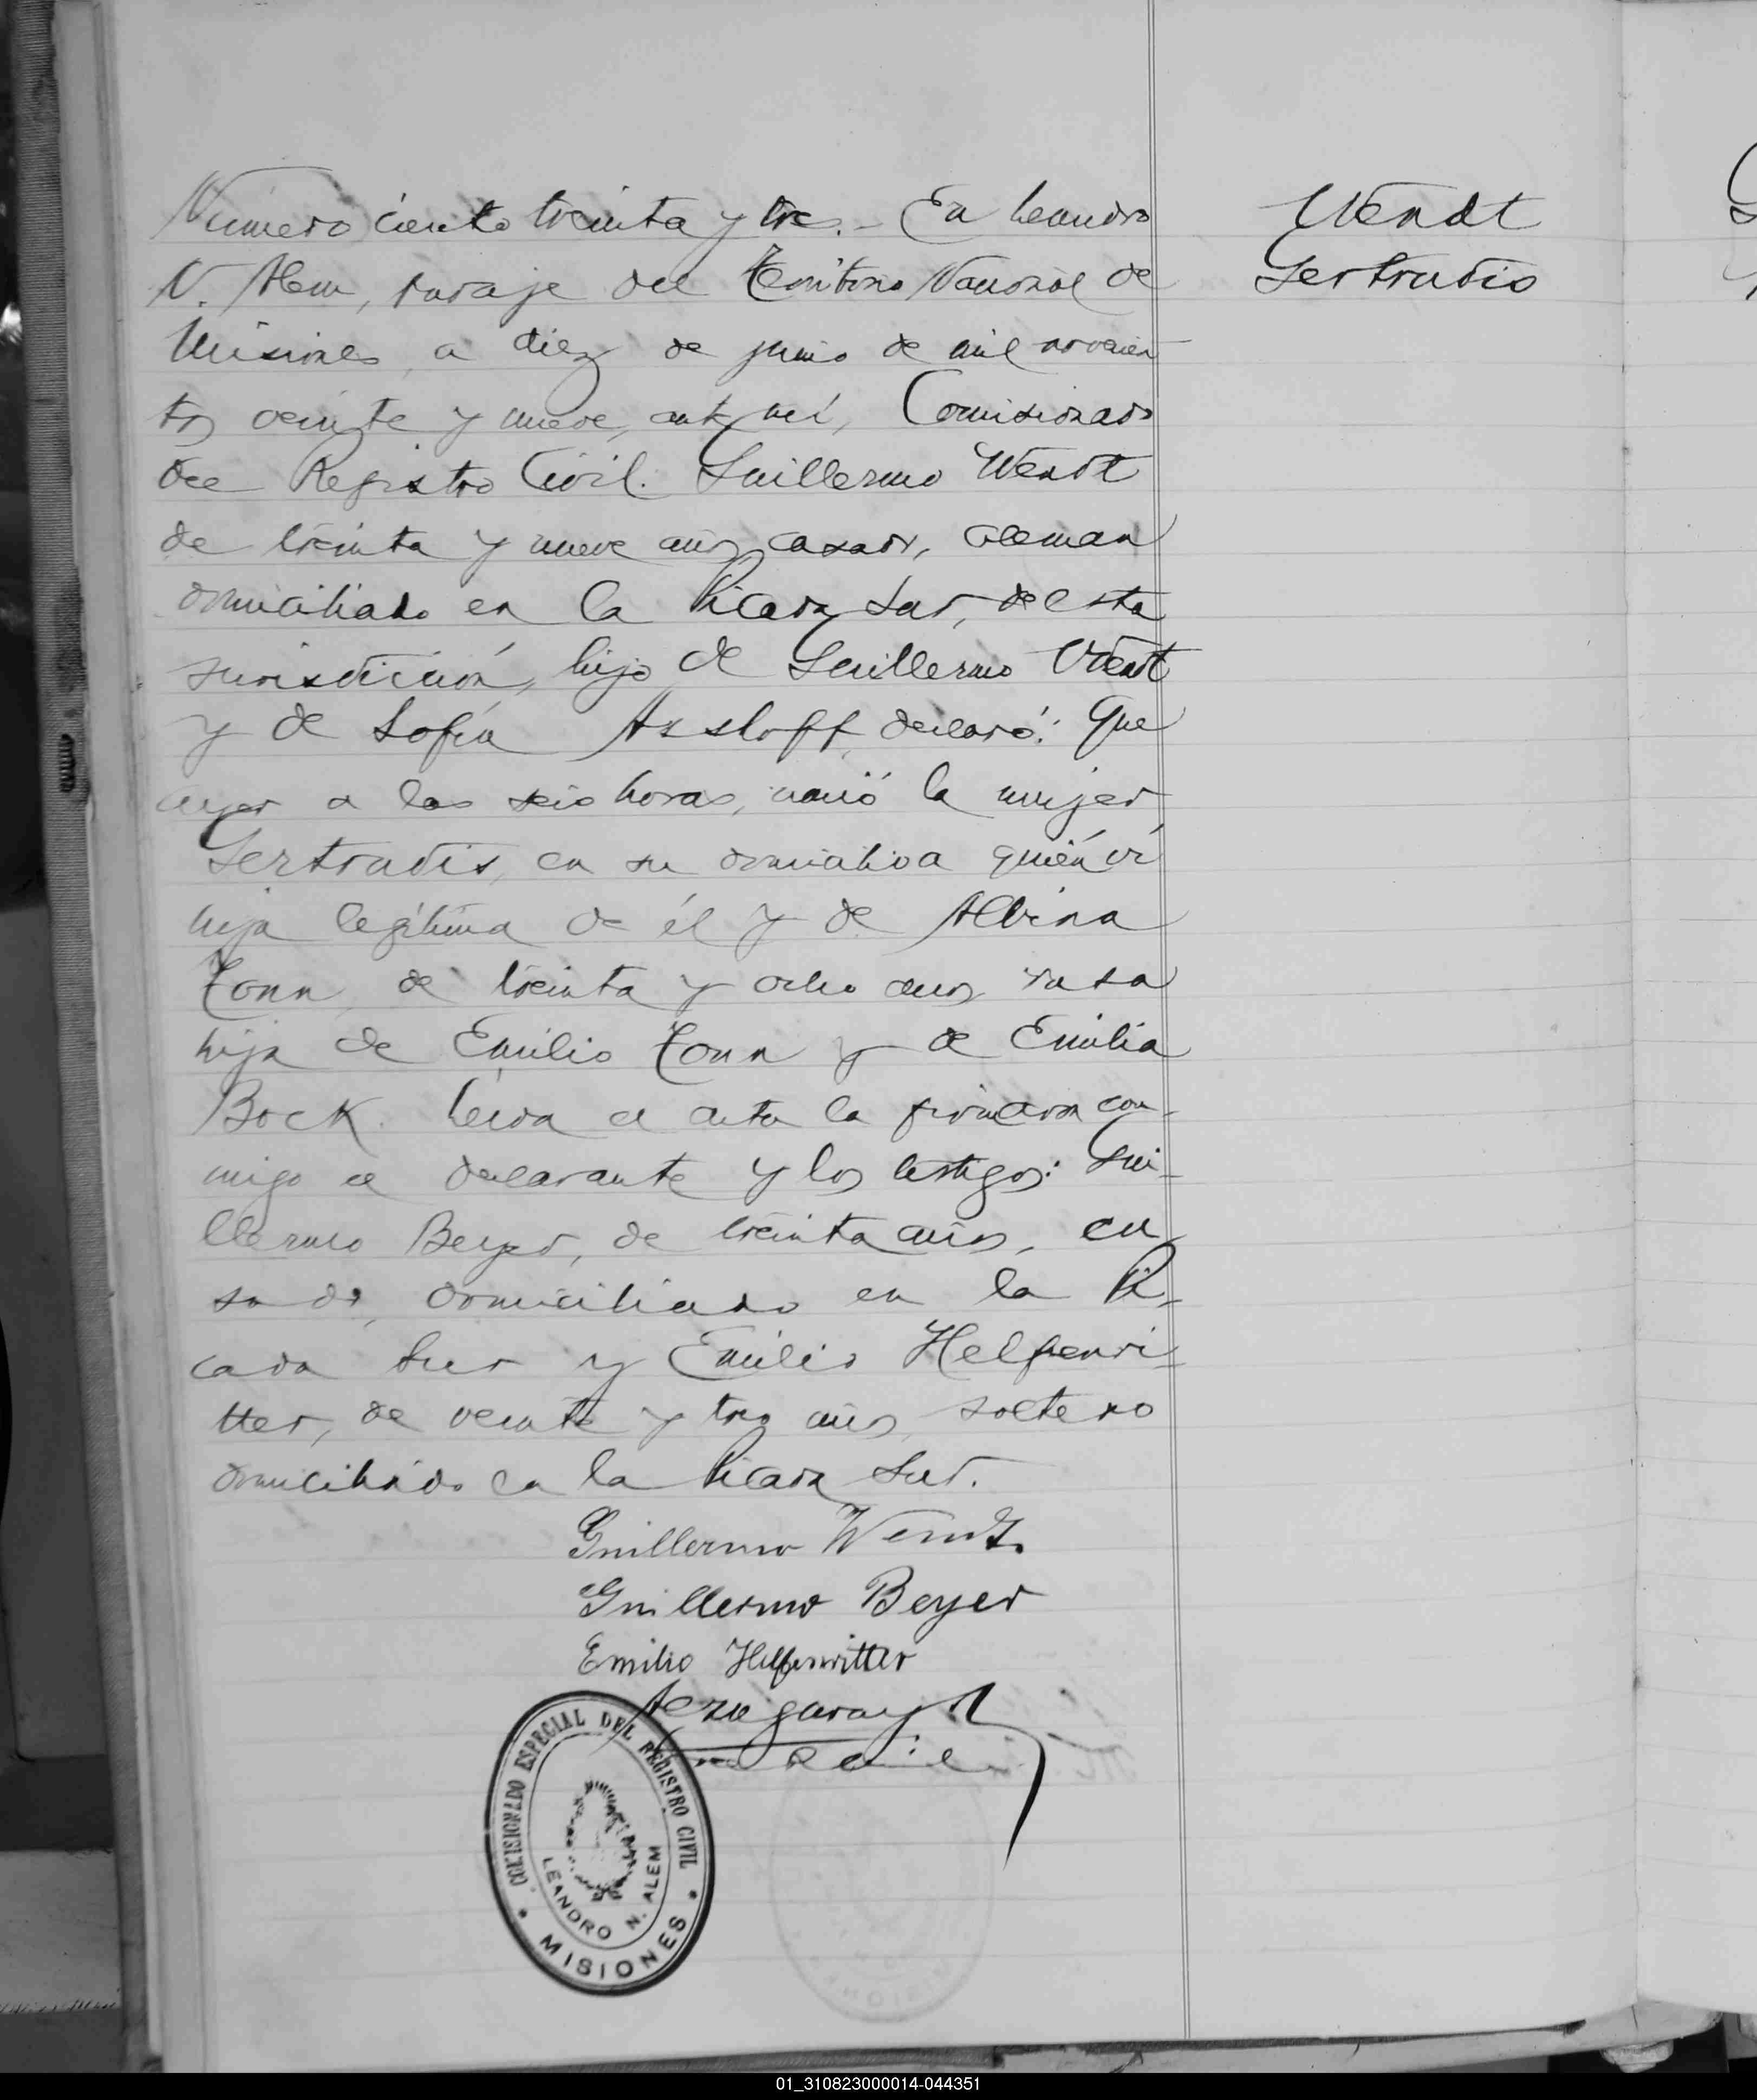 Número ciento treinta y tres.- En Leandro
N. Alem, paraje del Territorio Nacional de
Misiones, a diez de junio de mil novecien
tos veinte y nueve, ante mí, Comisionado
del Registro Civil. Guillermo Wendt
de treinta y nueve años, casado, aleman
domiciliado en la Picada Sur, de esta
jurisdicción, hijo de Guillermo Wendt
y de Sofía declaró: Que
ayer a las seis horas, nació la mujer
Gertrudis, en su domicilio a quién ví
hija legítima de él y de Albina
Tonn, de treinta y ocho años, rusa
hija de Emilio Tonn y de Emilia
Bock. Leída el acta la firmaron con-
migo el declarante y los testigos: Gui-
llermo Beyer, de treinta años, ca
sado, domiciliado en la Pi-
cada Sur y Emilio Helfenri-
tter, de veinte y tres años, soltero
domiciliado en la Picada Sur.
Guillermo Wendt.
Guillermo Beyer
Emilio Helfenritter
COMISIONADO ESPECIAL DEL REGISTRO CIVIL
LEANDRO N. ALEM
* MISIONES *
Wendt
Gertrudis
01_310823000014-044351